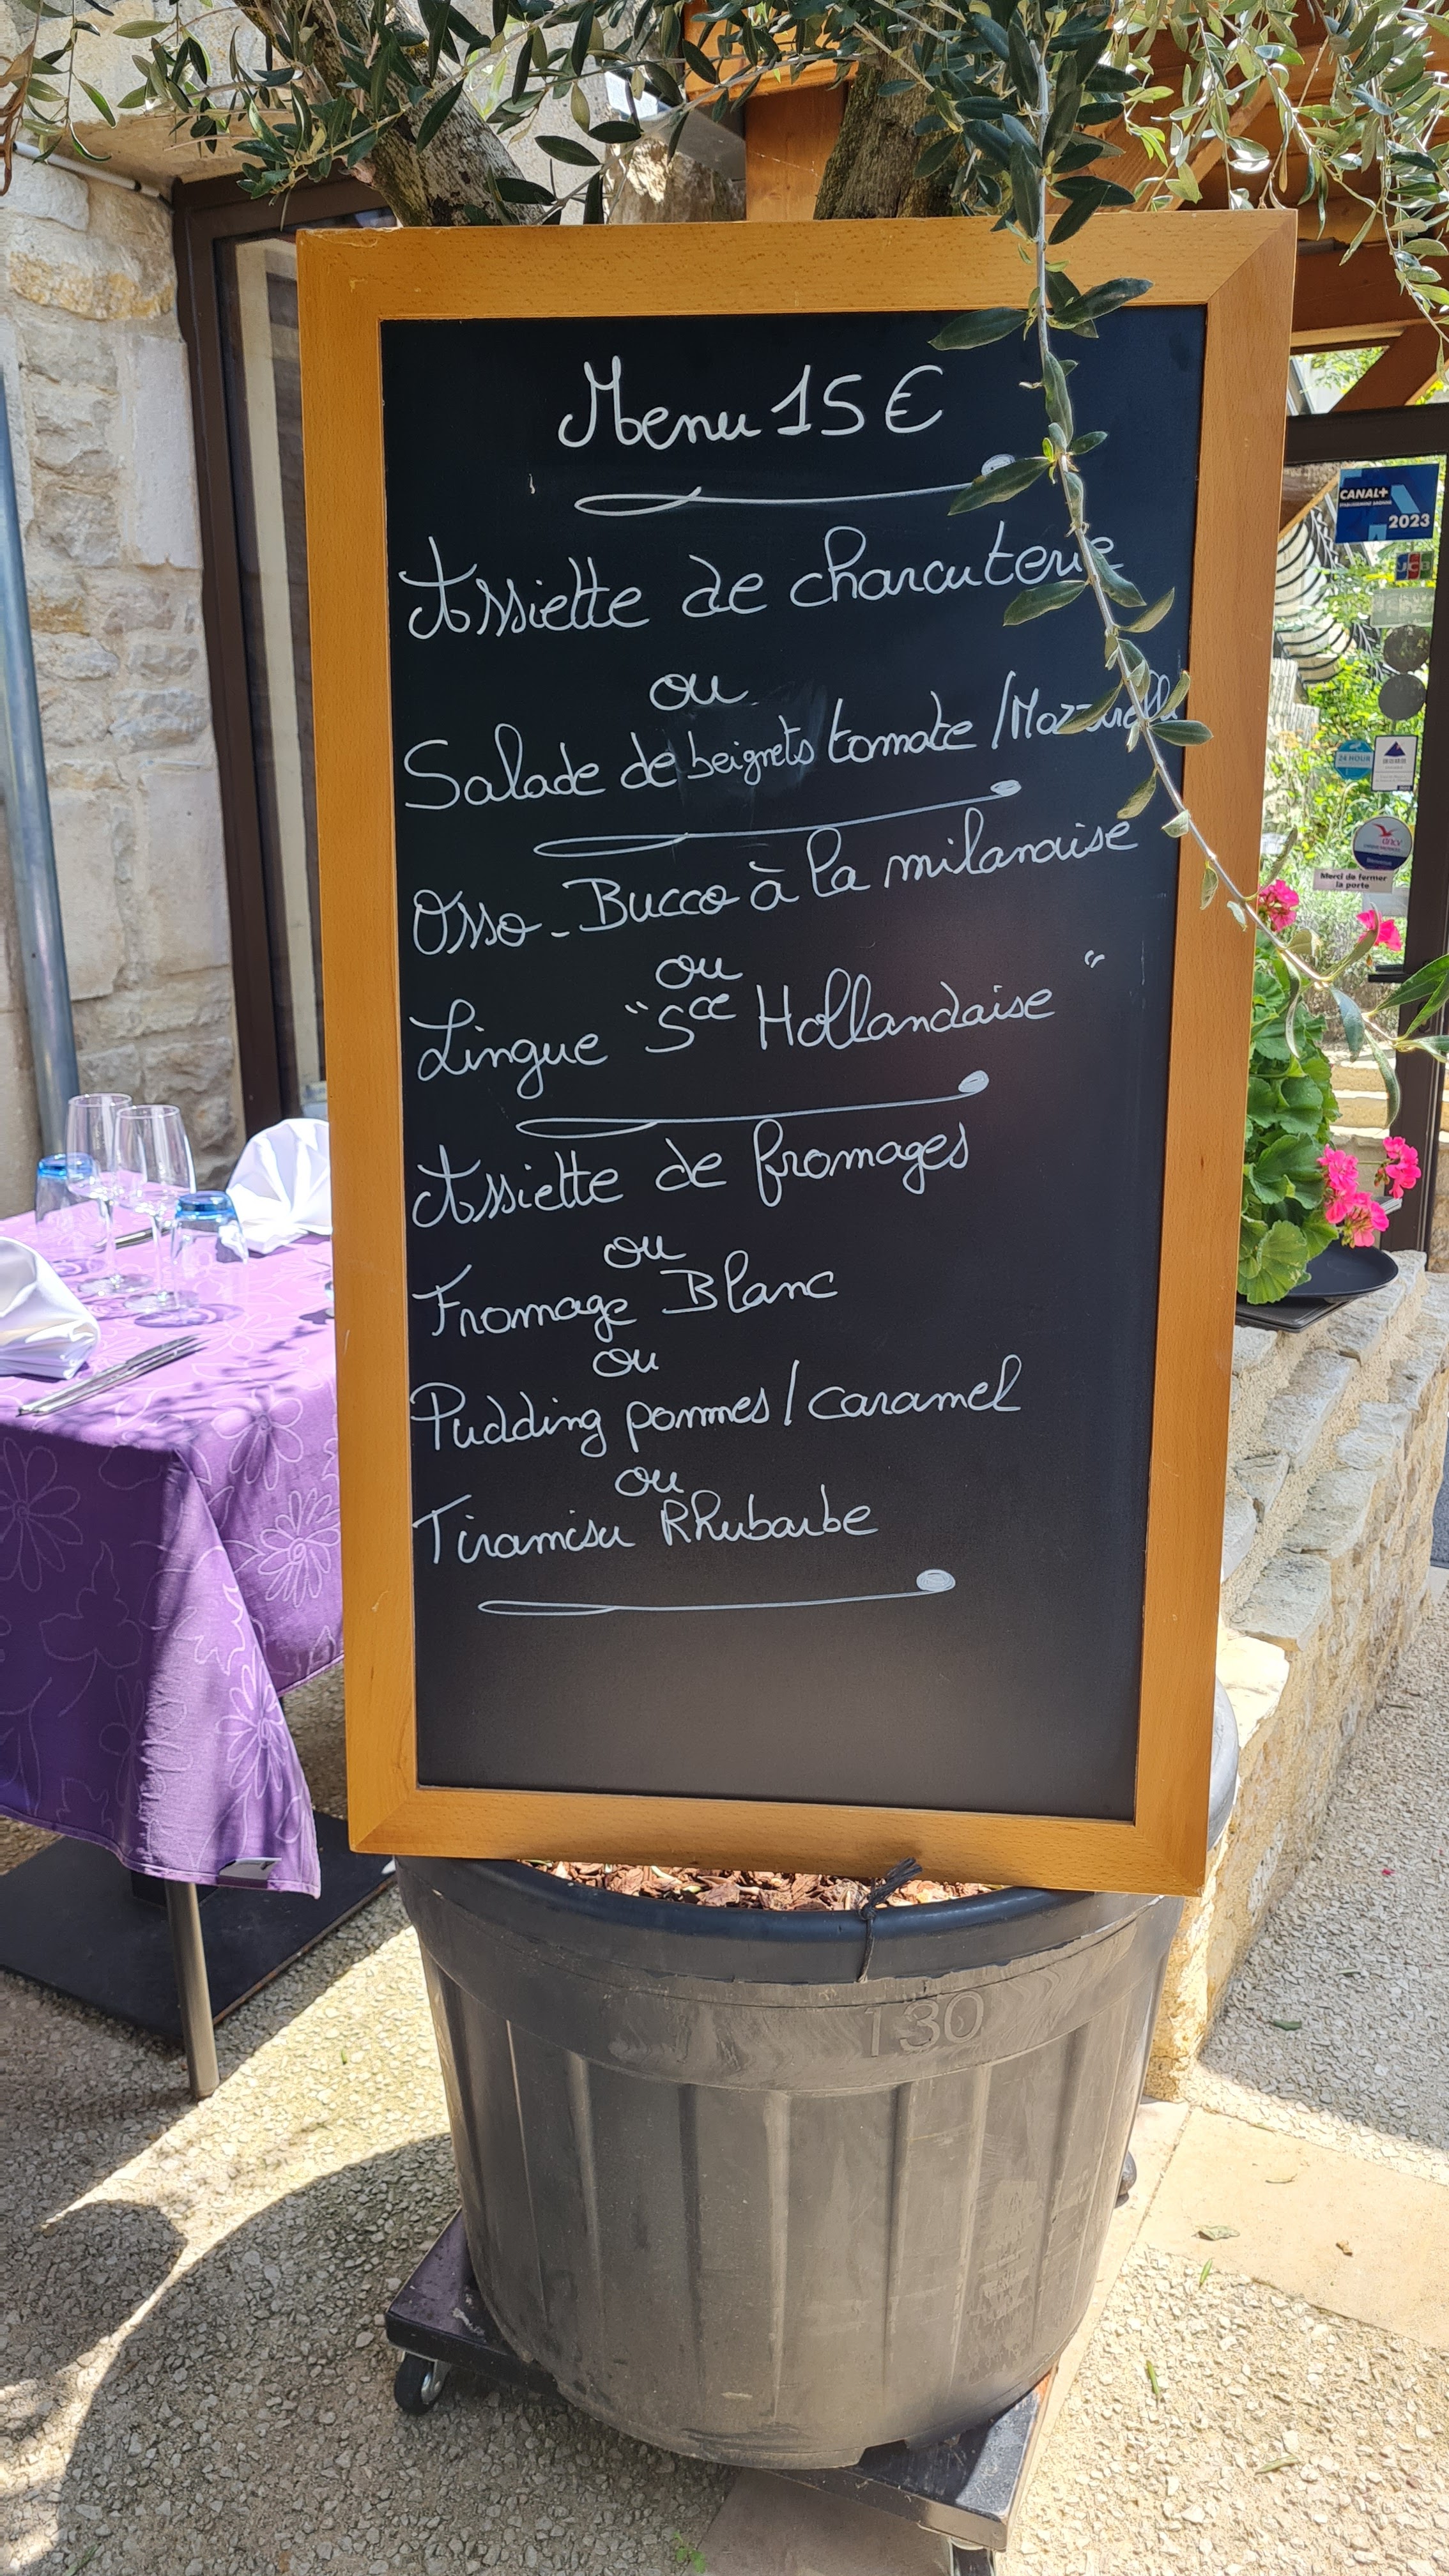 Menu 15 €
Assiette de charcuterie
ou
Salade de beignets tomate / Mozzarella
Osso-Bucco à la milanaise
ou
Lingue "Sce Hollandaise"
Assiette de fromages
ou
Fromage Blanc
ou
Pudding pommes / caramel
ou
Tiramisu RRhubarbe
130
CANAL+
2023
JCB
24 HOUR
ancv
Merci de fermer
la porte